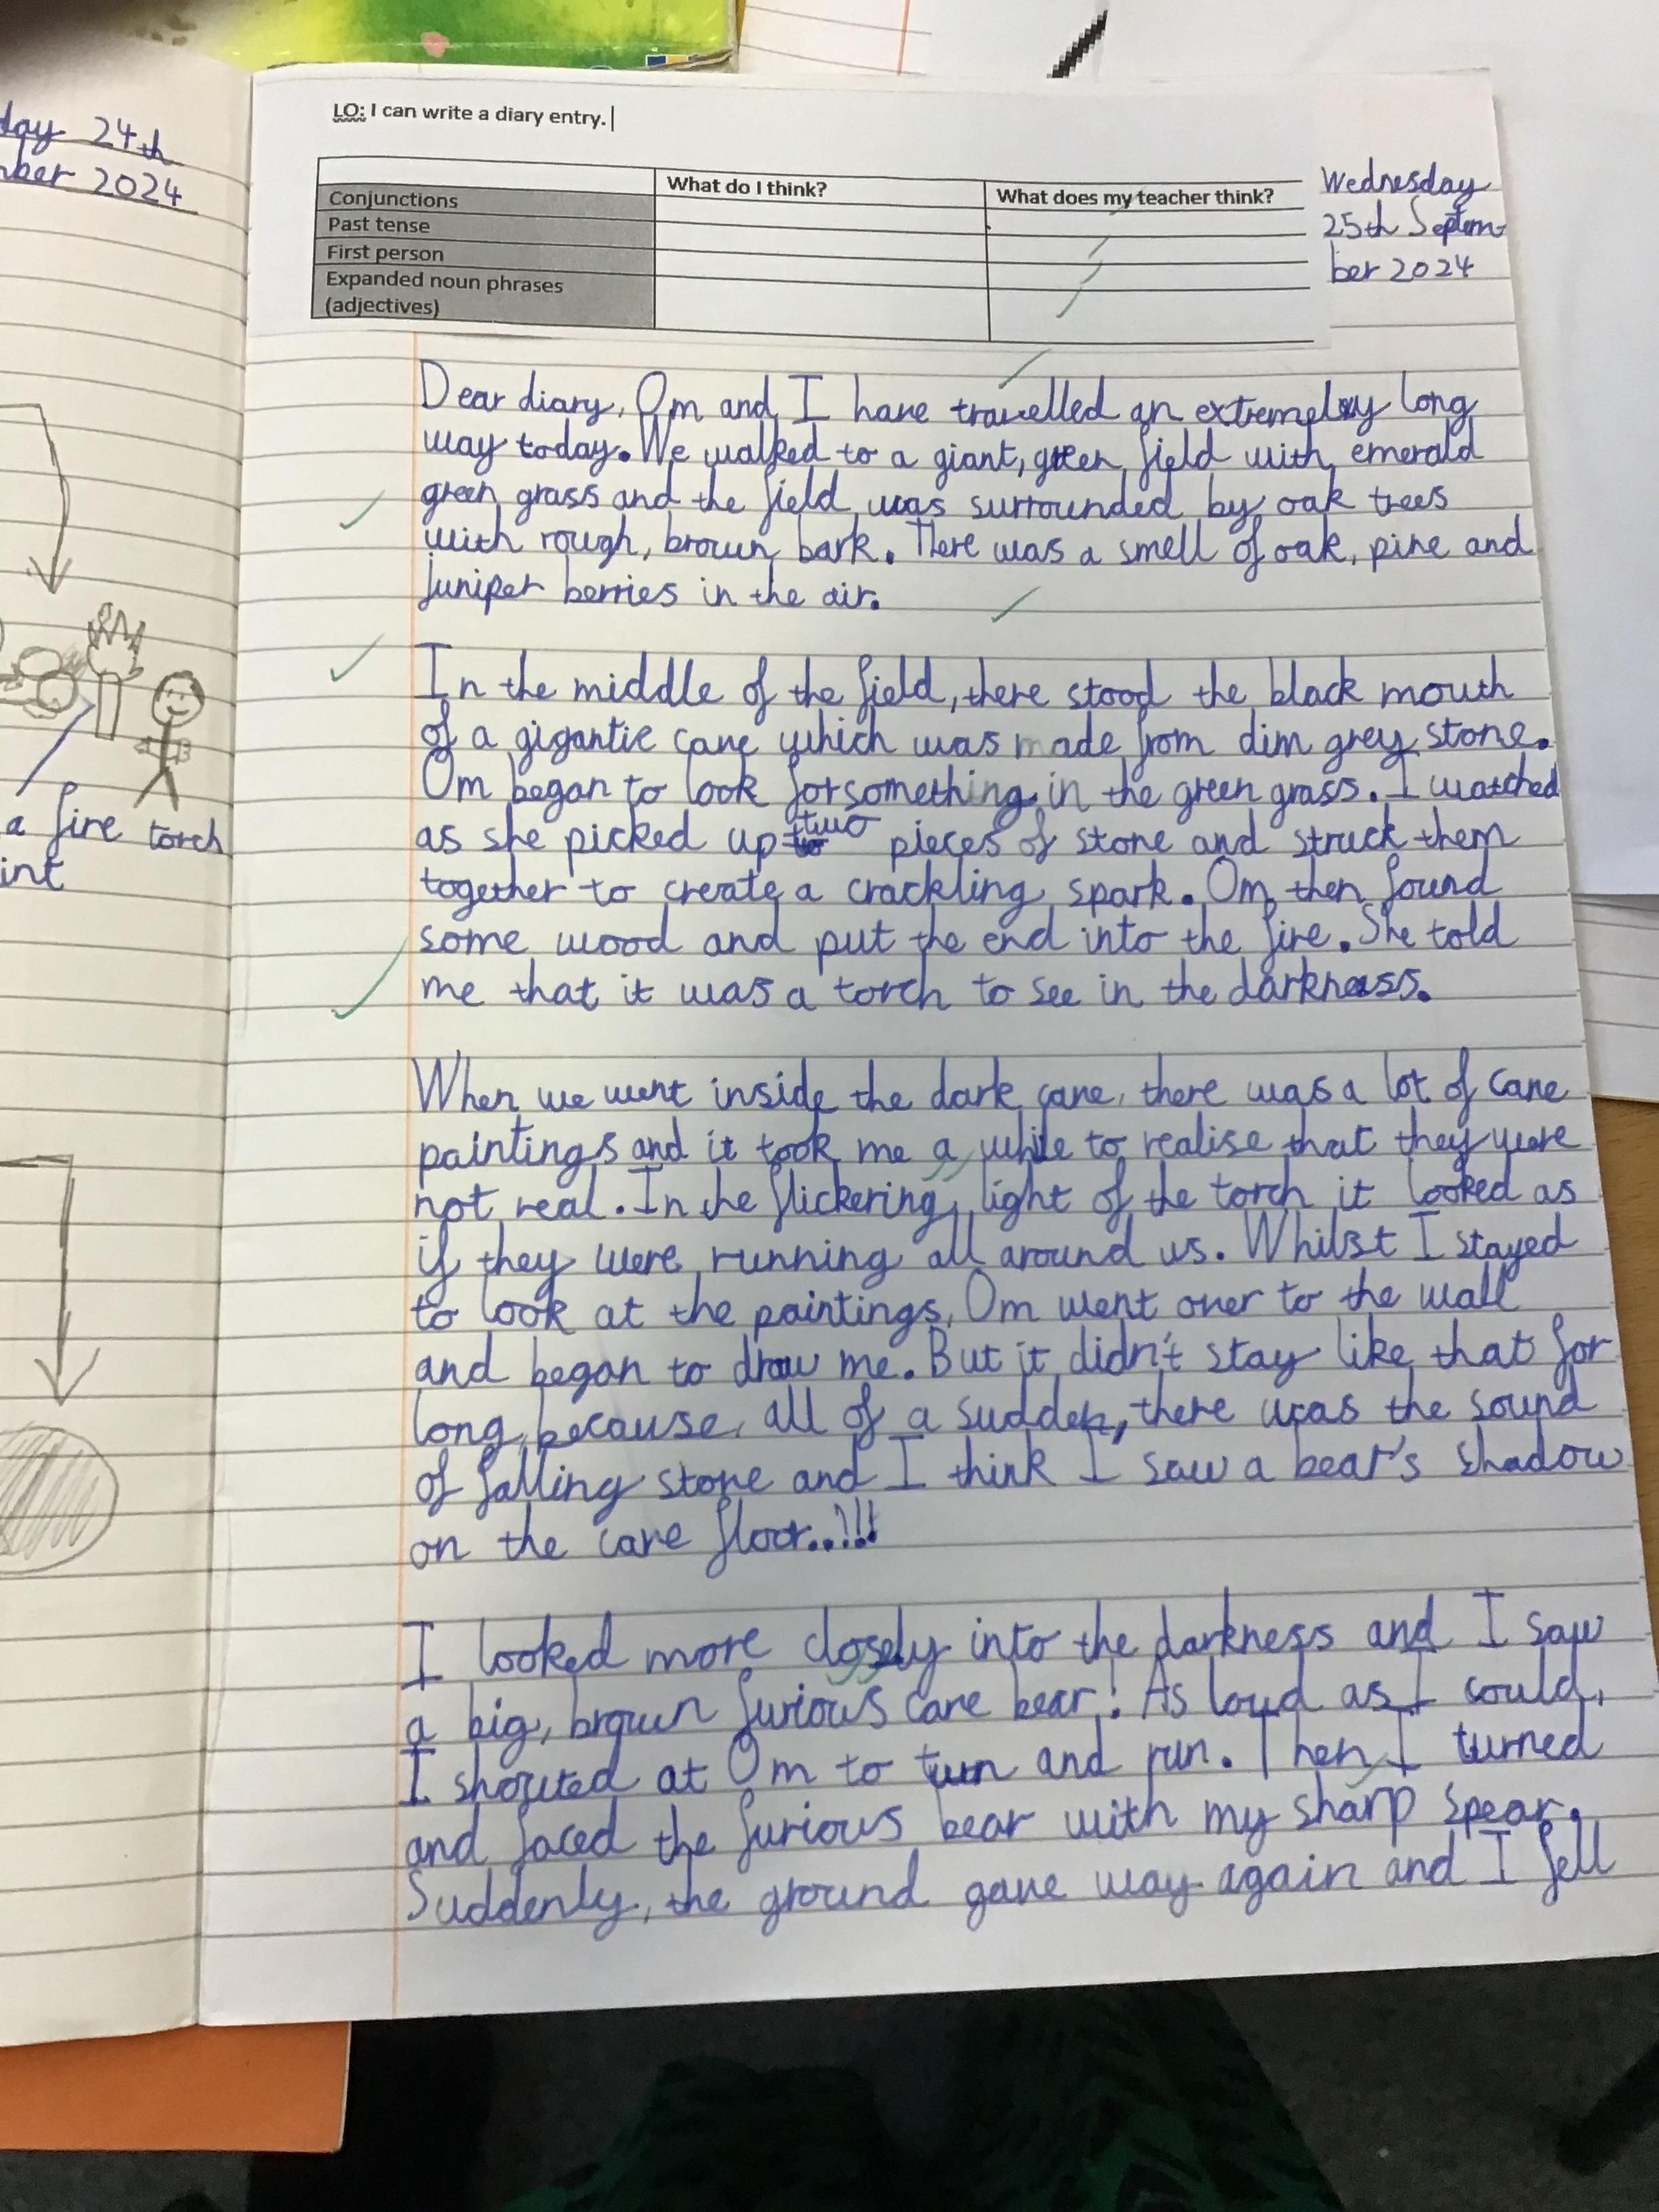 day 24th
mber 2024
a fire torch
int
LO: I can write a diary entry.
What do I think?
What does my teacher think?
Conjunctions
Past tense
First person
Expanded noun phrases
(adjectives)
Wednesday
25th Septem-
ber 2024
Dear diary, Om and I have travelled an extremely long
way today. We walked to a giant, green field with emerald
green grass and the field was surrounded by oak trees
with rough, brown bark. There was a smell of oak, pine and
juniper berries in the air.
In the middle of the field, there stood the black mouth
of a gigantic cave which was made from dim grey stone.
Om began to look for something in the green grass. I watched
as she picked up two pieces of stone and struck them
together to create a crackling spark. Om then found
some wood and put the end into the fire. She told
me that it was a torch to see in the darkness.
When we went inside the dark cave, there was a lot of cave
paintings and it took me a while to realise that they were
not real. In the flickering light of the torch it looked as
if they were running all around us. Whilst I stayed
to look at the paintings, Om went over to the wall
and began to draw me. But it didn't stay like that for
long because, all of a sudden, there was the sound
of falling stone and I think I saw a bear's shadow
on the cave floor...!!!
I looked more closely into the darkness and I saw
a big, brown furious cave bear! As loud as I could,
I shouted at Om to turn and run. Then I turned
and faced the furious bear with my sharp spear.
Suddenly, the ground gave way again and I fell